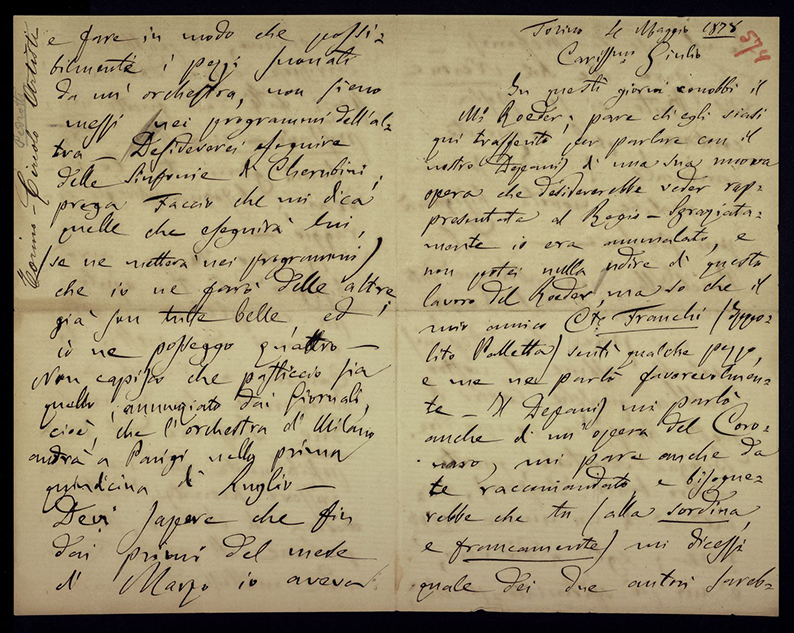 Torino 4 Maggio 1878
574
Carissmo Giulio
In questi giorni conobbi il
Mo Roeder; pare ch'egli siasi
qui trasferito per parlare con il
nostro Depanis di una sua nuova
opera che desidererebbe veder rap-
presentata al Regio – Sgraziata-
mente io era ammalato, e
non potei nulla udire di questo
lavoro del Roeder, ma so che il
mio amico Cte Franchi (Ippo-
lito Valletta) sentì qualche pezzo,
e me ne parlò favorevolmen-
te – Il Depanis mi parlò
anche di un'opera del Coro-
naro, mi pare anche da
te raccomandato, e bisogne-
rebbe che tu (alla sordina,
e francamente) mi dicessi
quale dei due autori sareb-
e fare in modo che possi-
bilmente i pezzi suonati
da un'orchestra, non sieno
messi nei programmi dell'al-
tra – Desidererei eseguire
delle Sinfonie di Cherubini,
prega Faccio che mi dica
quelle che eseguirà lui,
(se ne metterà nei programmi)
che io ne farò delle altre,
già son tutte belle ed
io ne posseggo quattro –
Non capisco che pasticcio sia
quello, annunziato dai Giornali,
cioè, che l'orchestra di Milano
andrà a Parigi nella prima
quindicina di Luglio –
Devi sapere che fin
dai primi del mese
di Marzo io aveva
Torino – Circolo Artisti